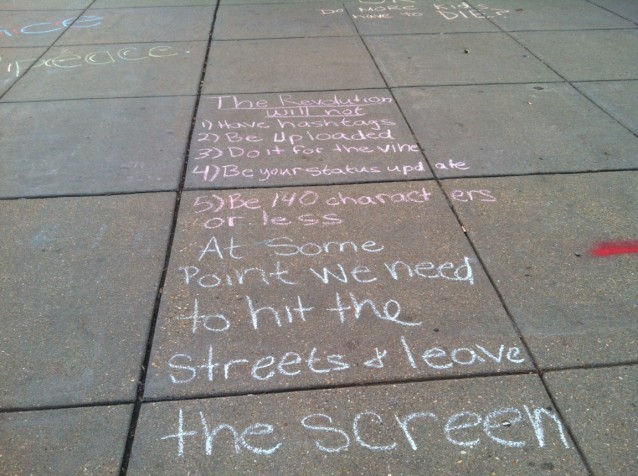 Do MORE Kids
have to DIE?
ce
peace.
The Revolution
will not
1) Have hashtags
2) Be Uploaded
3) Do it for the vine
4) Be your status update
5) Be 140 characters
or less
At Some
Point we need
to hit the
Streets & leave
the screen